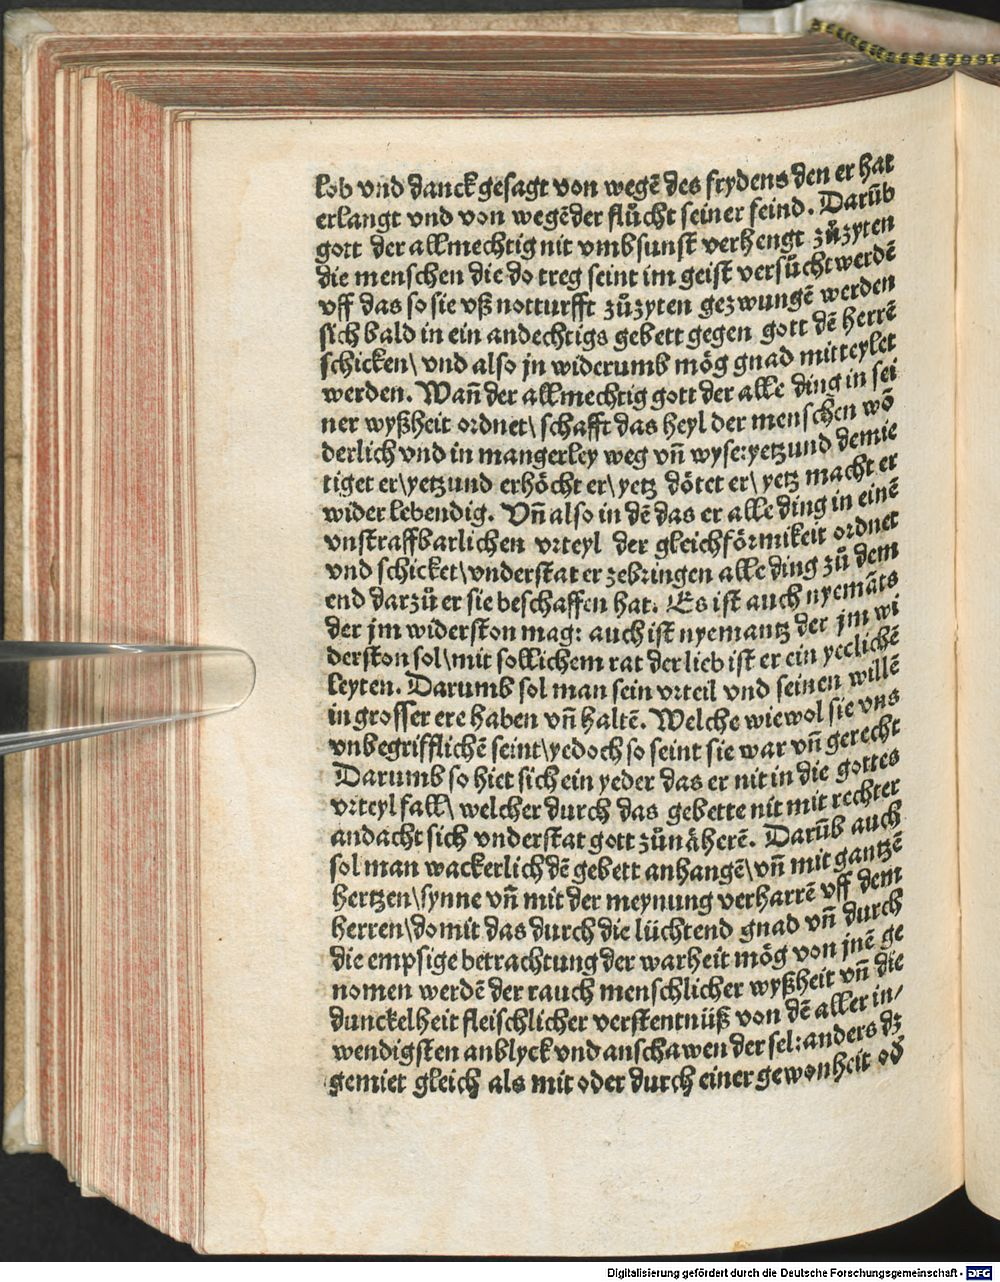 lob vnd danck gesagt von wegē des frydens den er hat
erlangt vnd von wegē der flůcht seiner feind. Darūb
gott der allmechtig nit vmbsunst verhengt zůzyten
die menschen die do treg seint im geist versůcht werdē
vff das so sie vß notturfft zůzyten gezwungē werden
sich bald in ein andechtigs gebett gegen gott dē herrē
schicken\ vnd also jn widerumb mög gnad mitteylet
werden. Wañ der allmechtig gott der alle ding in sei
ner wyßheit ordnet\ schafft das heyl der menschen wō
derlich vnd in mangerley weg vñ wyse: yetzund demie
tiget er\ yetzund erhöcht er\ yetz dötet er\ yetz macht er
wider lebendig. Vñ also in dē das er alle ding in einē
vnstraffbarlichen vrteyl der gleichförmikeit ordnet
vnd schicket\ vnderstat er zebringen alle ding zů dem
end darzů er sie beschaffen hat. Es ist auch nyemāts
der jm widerston mag: auch ist nyemantz der jm wi
derston sol\ mit sollichem rat der lieb ist er ein yeclichē
leyten. Darumb sol man sein vrteil vnd seinen willē
in grosser ere haben vñ haltē. Welche wiewol sie vns
vnbegrifflichē seint\ yedoch so seint sie war vñ gerecht
Darumb so hiet sich ein yeder das er nit in die gottes
vrteyl fall\ welcher durch das gebette nit mit rechter
andacht sich vnderstat gott zůnäherē. Darūb auch
sol man wackerlich dē gebett anhangē\ vñ mit gantzē
hertzen\ synne vñ mit der meynung verharrē vff dem
herren\ domit das durch die lüchtend gnad vñ durch
die empsige betrachtung der warheit mög von jnē ge
nomen werdē der rauch menschlicher wyßheit vñ die
dunckelheit fleischlicher verstentnüß von dē aller in/
wendigsten anblyck vnd anschawen der sel: anders dz
gemiet gleich als mit oder durch einer gewonheit od
Digitalisierung gefördert durch die Deutsche Forschungsgemeinschaft - DFG